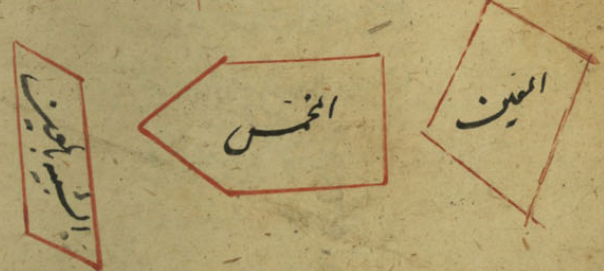 المعين
المخمس
الشبيه بالمعين